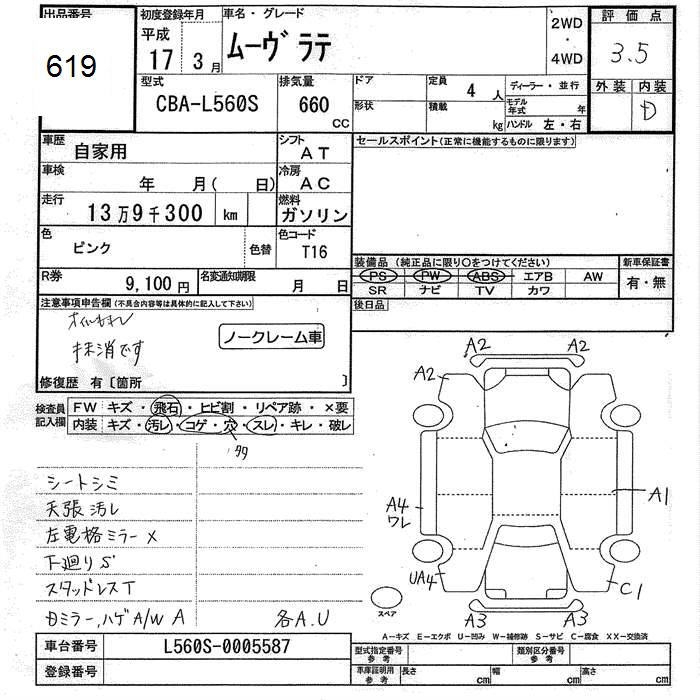 出品番号
619
初度登録年月
平成
17 3月
車名・グレード
ムーヴ ラテ
2WD
・
4WD
評価点
3.5
外装 内装
D
型式
CBA-L560S
排気量
660
CC
ドア
形状
定員
4 人
積載
kg
ディーラー・並行
モデル年式 年
ハンドル 左・右
車歴
自家用
シフト
AT
セールスポイント(正常に機能するものに限ります)
車検
年 月( 日)
冷房
AC
走行
13万9千300 km
燃料
ガソリン
色
ピンク
色替
色コード
T16
装備品(純正品に限り○をつけてください)
PS PW ABS エアB AW
SR ナビ TV カワ
新車保証書
有・無
R券
9,100円
名変通知期限
月 日
後日品
注意事項申告欄(不具合内容等は具体的に記入して下さい)
オイルもれ
抹消です
ノークレーム車
修復歴 有〔箇所 〕
検査員記入欄
FW キズ・飛石・ヒビ割・リペア跡・×要
内装 キズ・汚レ・コゲ・穴・スレ・キレ・破レ
多
シートシミ
天張汚レ
左電格ミラー×
下廻りS
スタッドレスT
Dミラー,ハゲA/W A
各A.U
A2 A2
A2
A4
ワレ
A1
UA4
C1
A3 A3
スペア
A-キズ E-エクボ U-凹み W-補修跡 S-サビ C-腐食 XX-交換済
車台番号 L560S-0005587
登録番号
型式指定番号
参考
類別区分番号
参考
車庫証明用
参考
長さ cm 幅 cm 高さ cm